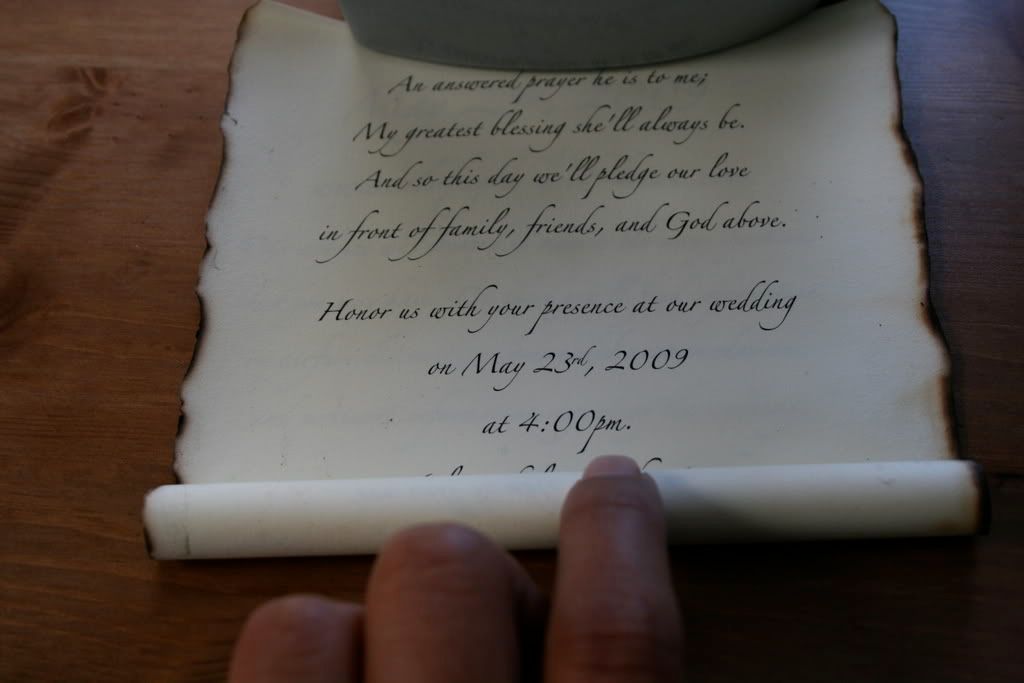 An answered prayer he is to me;
My greatest blessing she'll always be.
And so this day we'll pledge our love
in front of family, friends, and God above.
Honor us with your presence at our wedding
on May 23rd, 2009
at 4:00pm.